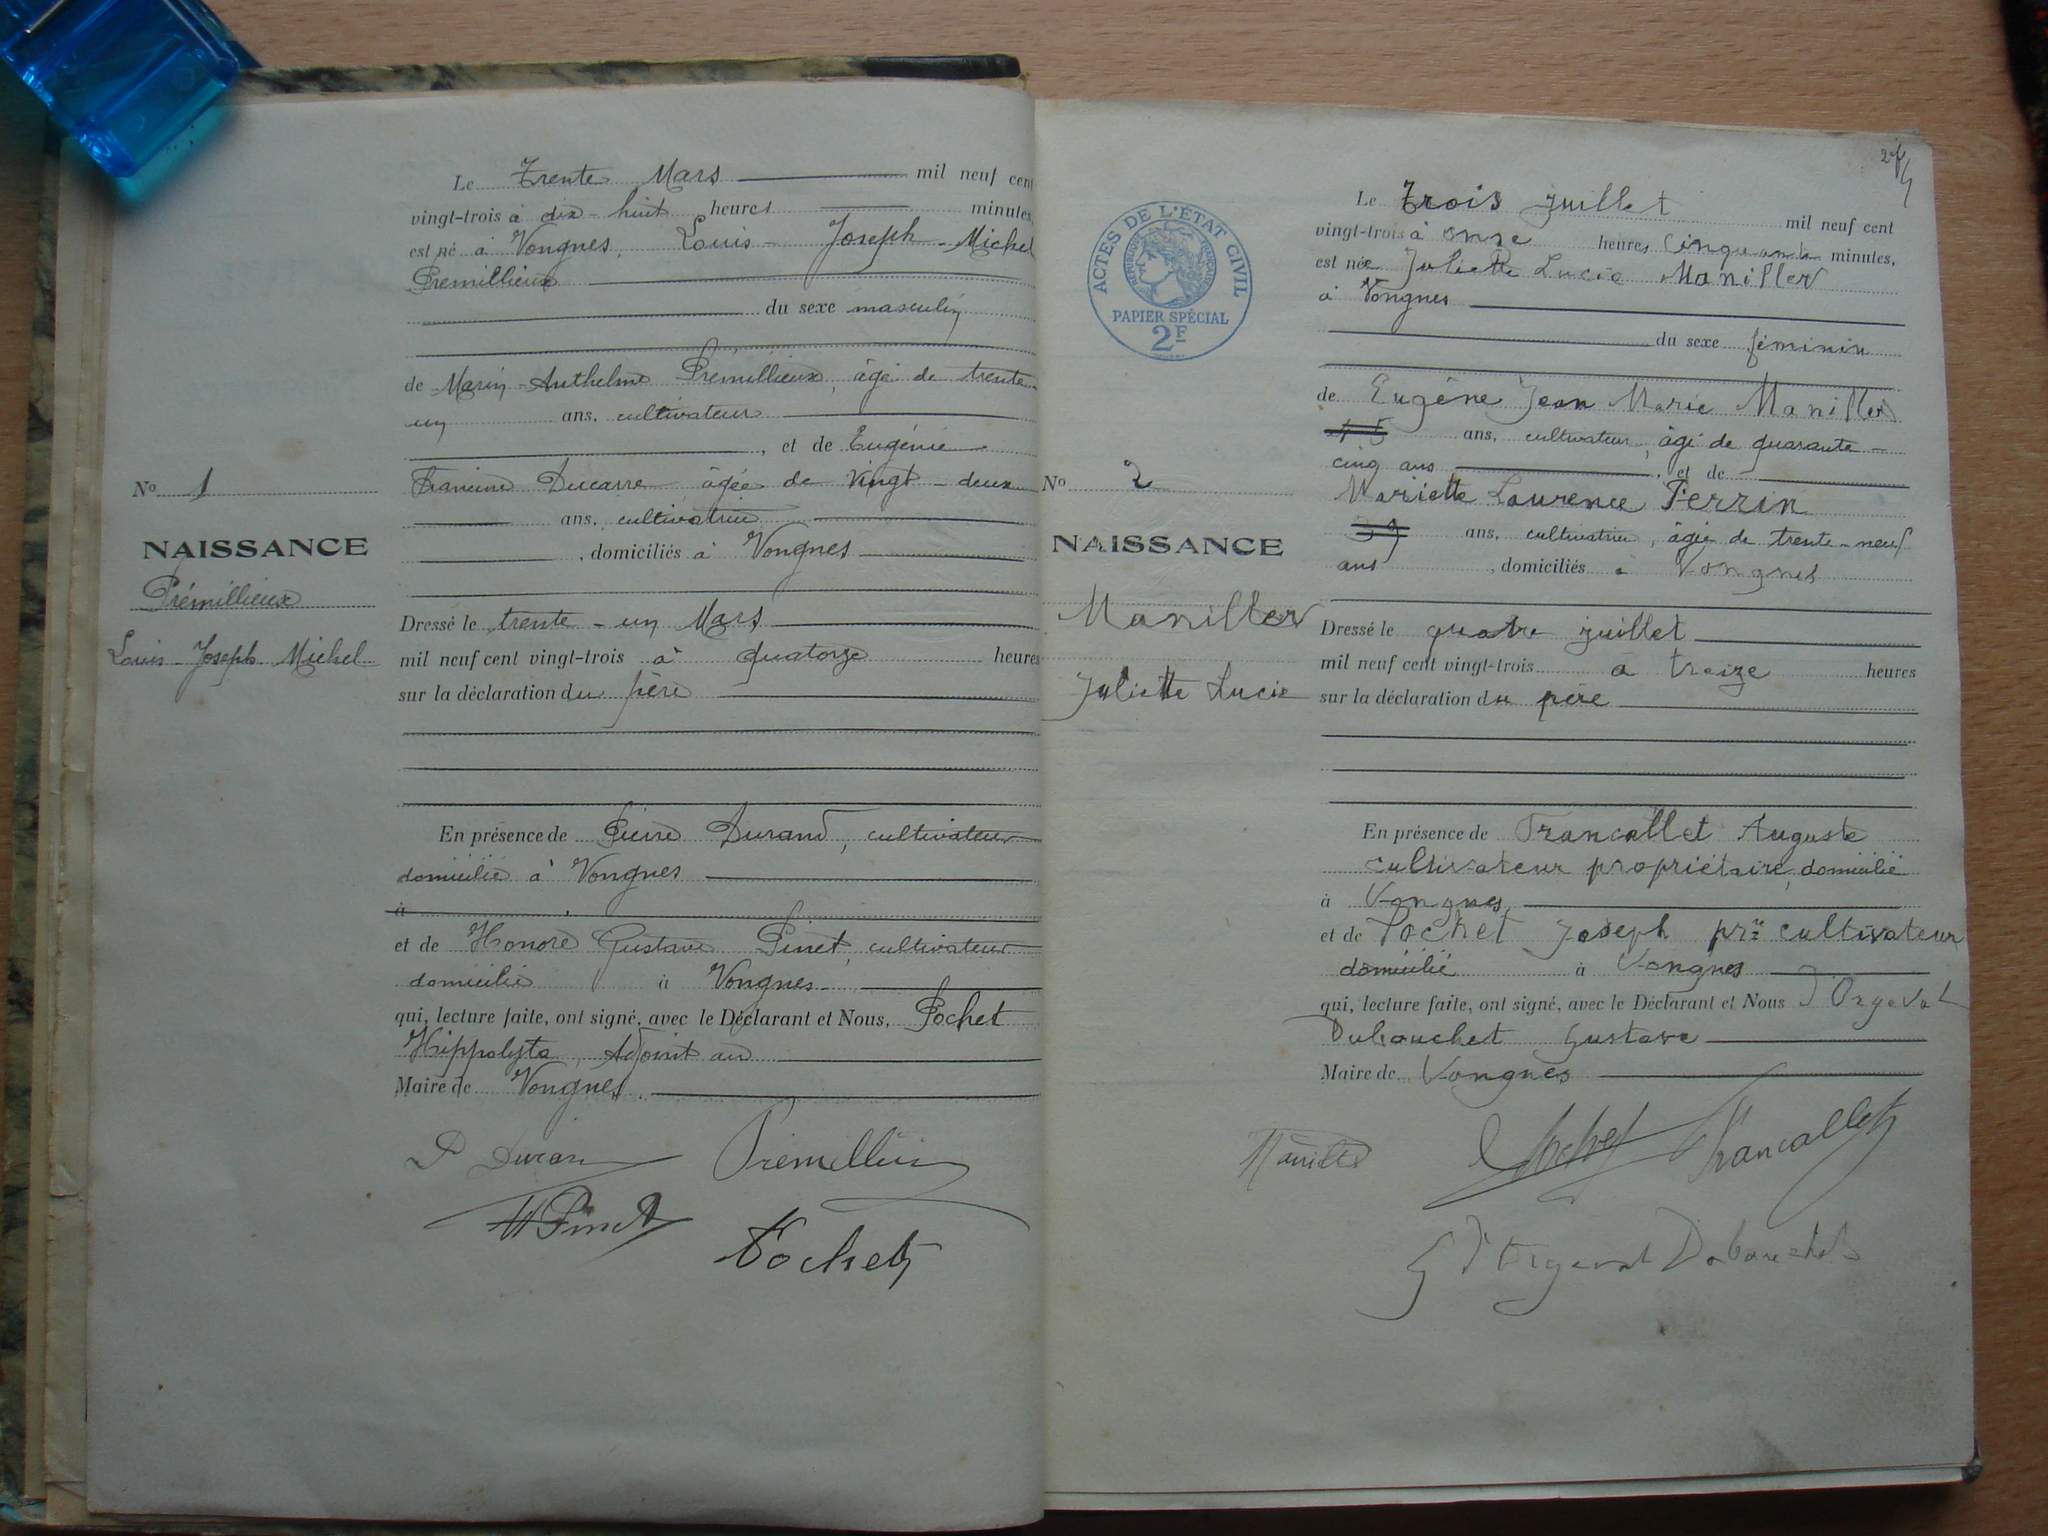 Le Trente Mars mil neuf cent
vingt-trois à dix-huit heures minutes,
est né à Vongnes, Louis-Joseph-Michel
Prémillieux
du sexe masculin
de Marin-Anthelme Prémillieux, âgé de trente-
un ans, cultivateur
, et de Eugénie
Francine Ducarre âgée de vingt-deux
ans, cultivatrice
, domiciliés à Vongnes
Dressé le trente-un Mars
mil neuf cent vingt-trois à quatorze heures
sur la déclaration du père
En présence de Pierre Durand, cultivateur
domicilié à Vongnes
à
et de Honoré Gustave Pinet, cultivateur
domicilié à Vongnes
qui, lecture faite, ont signé, avec le Déclarant et Nous, Pochet
Hippolyte, Adjoint au
Maire de Vongnes
No 1
NAISSANCE
Prémillieux
Louis-Joseph-Michel
P Duran Prémillieux
H Pinet Pochet
ACTES DE L'ETAT CIVIL
REPUBLIQUE FRANÇAISE
PAPIER SPÉCIAL
2F
Le Trois juillet mil neuf cent
vingt-trois à onze heures cinquante minutes,
est née Juliette Lucie Maniller
à Vongnes
du sexe féminin
de Eugène Jean Marie Maniller
45 ans, cultivateur, âgé de quarante-
cinq ans, et de
Mariette Laurence Ferrin
39 ans, cultivatrice, âgée de trente-neuf
ans, domiciliés à Vongnes
Dressé le quatre juillet
mil neuf cent vingt-trois à treize heures
sur la déclaration du père
En présence de Francallet Auguste
cultivateur propriétaire, domicilié
à Vongnes
et de Pochet Joseph pre cultivateur
domicilié à Vongnes
qui, lecture faite, ont signé, avec le Déclarant et Nous D'Orgeval
Dubouchet Gustave
Maire de Vongnes
No 2
NAISSANCE
Maniller
Juliette Lucie
Maniller Pochet Francallet
G d'Orgeval Dubouchet